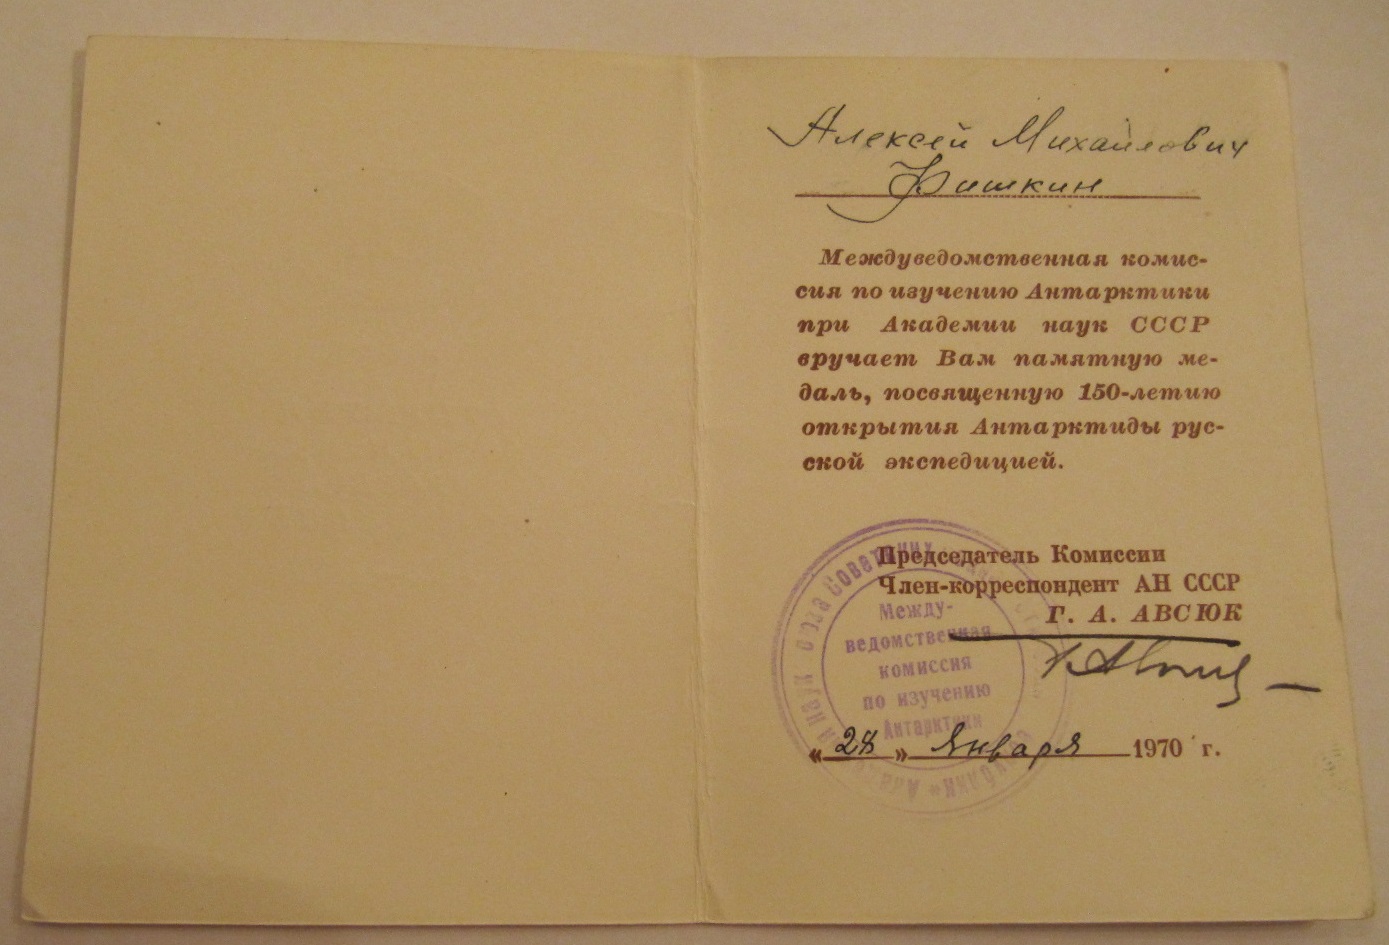 Алексей Михайлович
Фишкин
Междуведомственная комис-
сия по изучению Антарктики
при Академии наук СССР
вручает Вам памятную ме-
даль, посвященную 150-летию
открытия Антарктиды рус-
ской экспедицией.
Председатель Комиссии
Член-корреспондент АН СССР
Г. А. АВСЮК
Между-
ведомственная
комиссия
по изучению
Антарктики
«28» Января 1970 г.